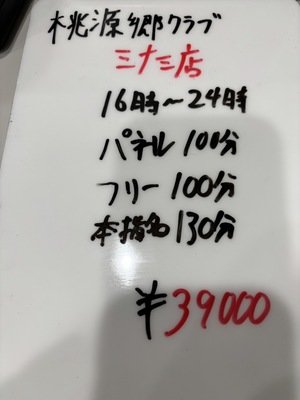 桃源郷クラブ
三十三店
16時~24時
パネル 100分
フリー 100分
本指名 130分
¥39000